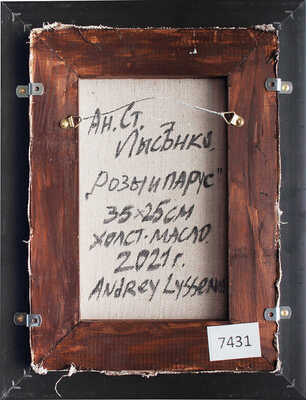 Ан. Ст.
Лысенко.
"Розы и парус"
35×25см
холст-масло.
2021 г.
Andrey Lyssen
7431